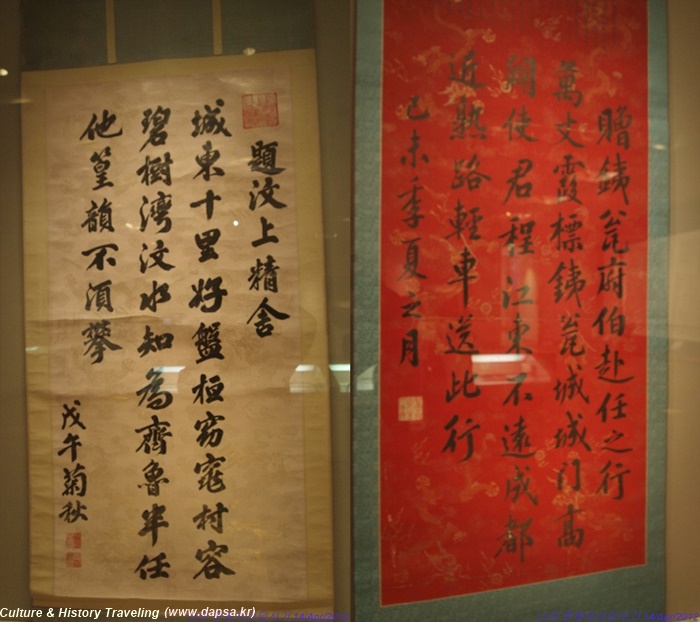 題汶上精舍
城東十里好盤桓窈窕村容
碧樹灣汶水知為齊魯半任
他篁韻不須攀
戊午菊秋
贈銕瓮府伯赴任之行
萬丈霞標銕瓮城城門高
使君程江東不遠成都
近熟路輕車送此行
己未季夏之月
Culture & History Traveling (www.dapsa.kr)